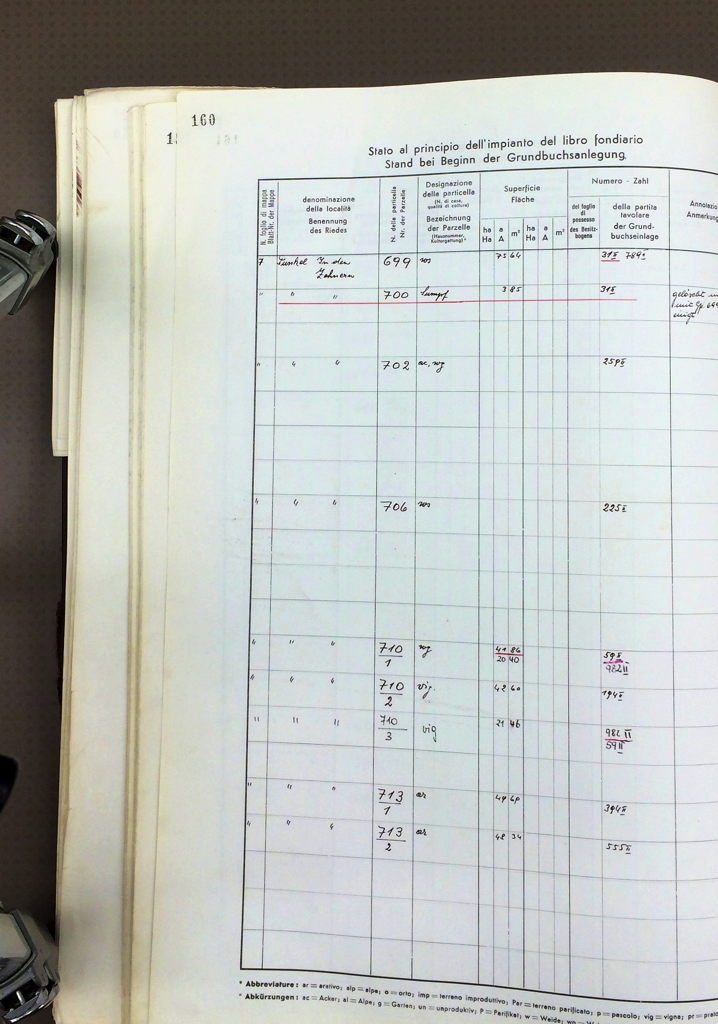 160
Stato al principio dell'impianto del libro fondiario
Stand bei Beginn der Grundbuchsanlegung.
N. foglio di mappa
Blatt-Nr. der Mappe
denominazione
della località
Benennung
des Riedes
N. della particella
Nr. der Parzelle
Designazione
della particella
(N. di casa,
qualità di coltura)
Bezeichnung
der Parzelle
(Hausnummer,
Kulturgattung)*
Superficie
Fläche
ha a m² ha a m²
Ha A Ha A
Numero - Zahl
del foglio
di
possesso
des Besitz-
bogens
della partita
tavolare
der Grund-
buchseinlage
Annotazio
Anmerkung
7 In den 699 75 64 31 II
" " " 700 Sumpf 3 85 31 II gelöscht
" " " 702 ac, wg
" " " 706 225 II
" " " 710/1 wg 41 86 59 II
20 40 982 II
" " " 710/2 vig. 42 60 194 II
" " " 710/3 vig 21 46 982 II
59 II
" " " 713/1 ar 394 II
" " " 713/2 ar 48 34 555 II
* Abbreviature: ar = arativo; alp = alpe; o = orto; imp = terreno improduttivo; Par = terreno parificato; p = pascolo; vig = vigna; pr = prato
* Abkürzungen: ac = Acker; al = Alpe; g = Garten; un = unproduktiv; P = Parifikat; w = Weide;